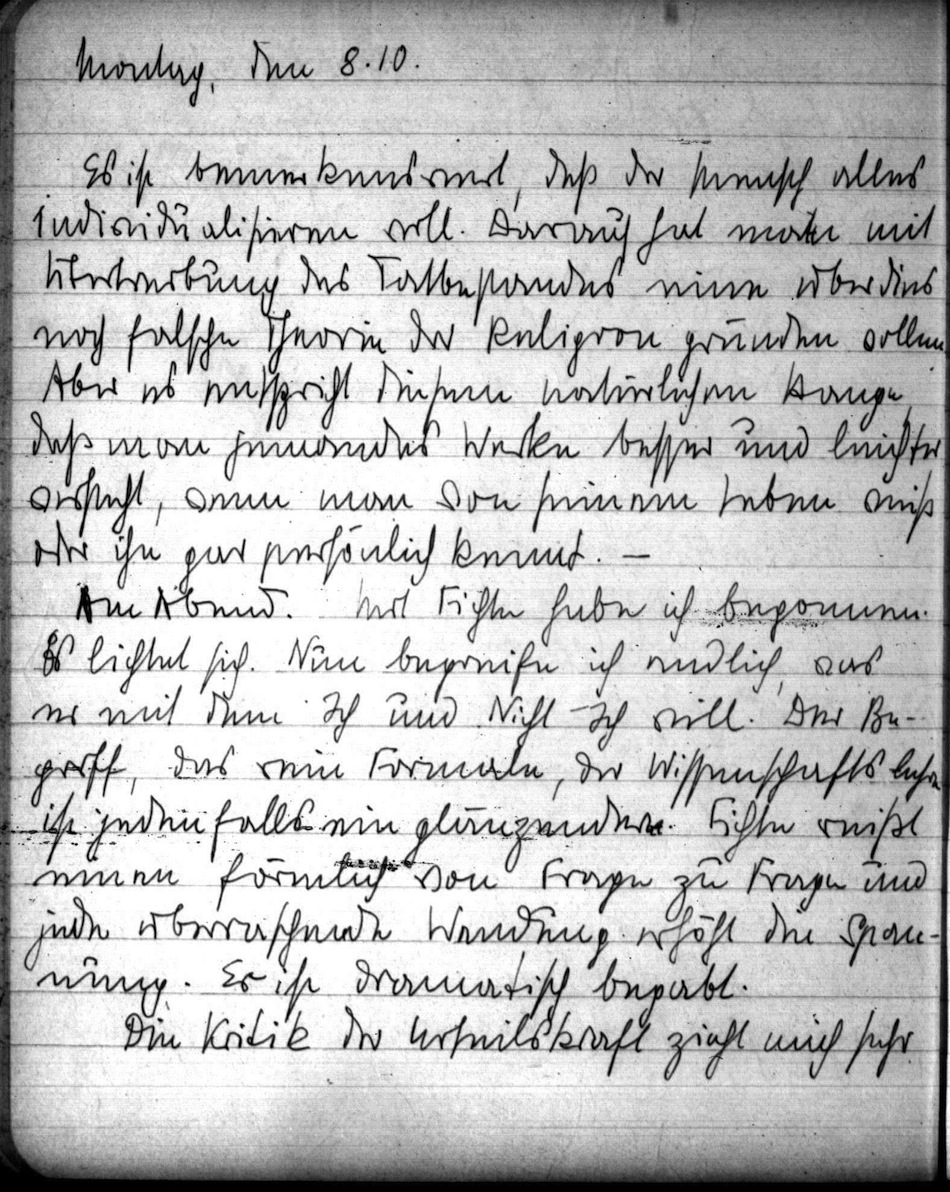 Montag, den 8.10.
Es ist bemerkenswert, daß der Mensch alles
individualisieren will. Darauf hat man mit
Übertreibung des Tatbestandes eine überdies
noch falsche Theorie der Religion gründen wollen.
Aber es entspricht diesem natürlichen Hange,
daß man jemandes Werke besser und leichter
versteht, wenn man von seinem Leben weiß
oder ihn gar persönlich kennt. —
Am Abend. Mit Fichte habe ich begonnen.
Es lichtet sich. Nun begreife ich endlich, was
er mit dem Ich und Nicht-Ich will. Der Be-
griff, das rein Formale, der Wissenschaftslehre
ist jedenfalls ein glänzender. Fichte reißt
einen förmlich von Frage zu Frage und
jede überraschende Wendung erhöht die Span-
nung. Er ist dramatisch begabt.
Die Kritik der Urteilskraft zieht mich sehr